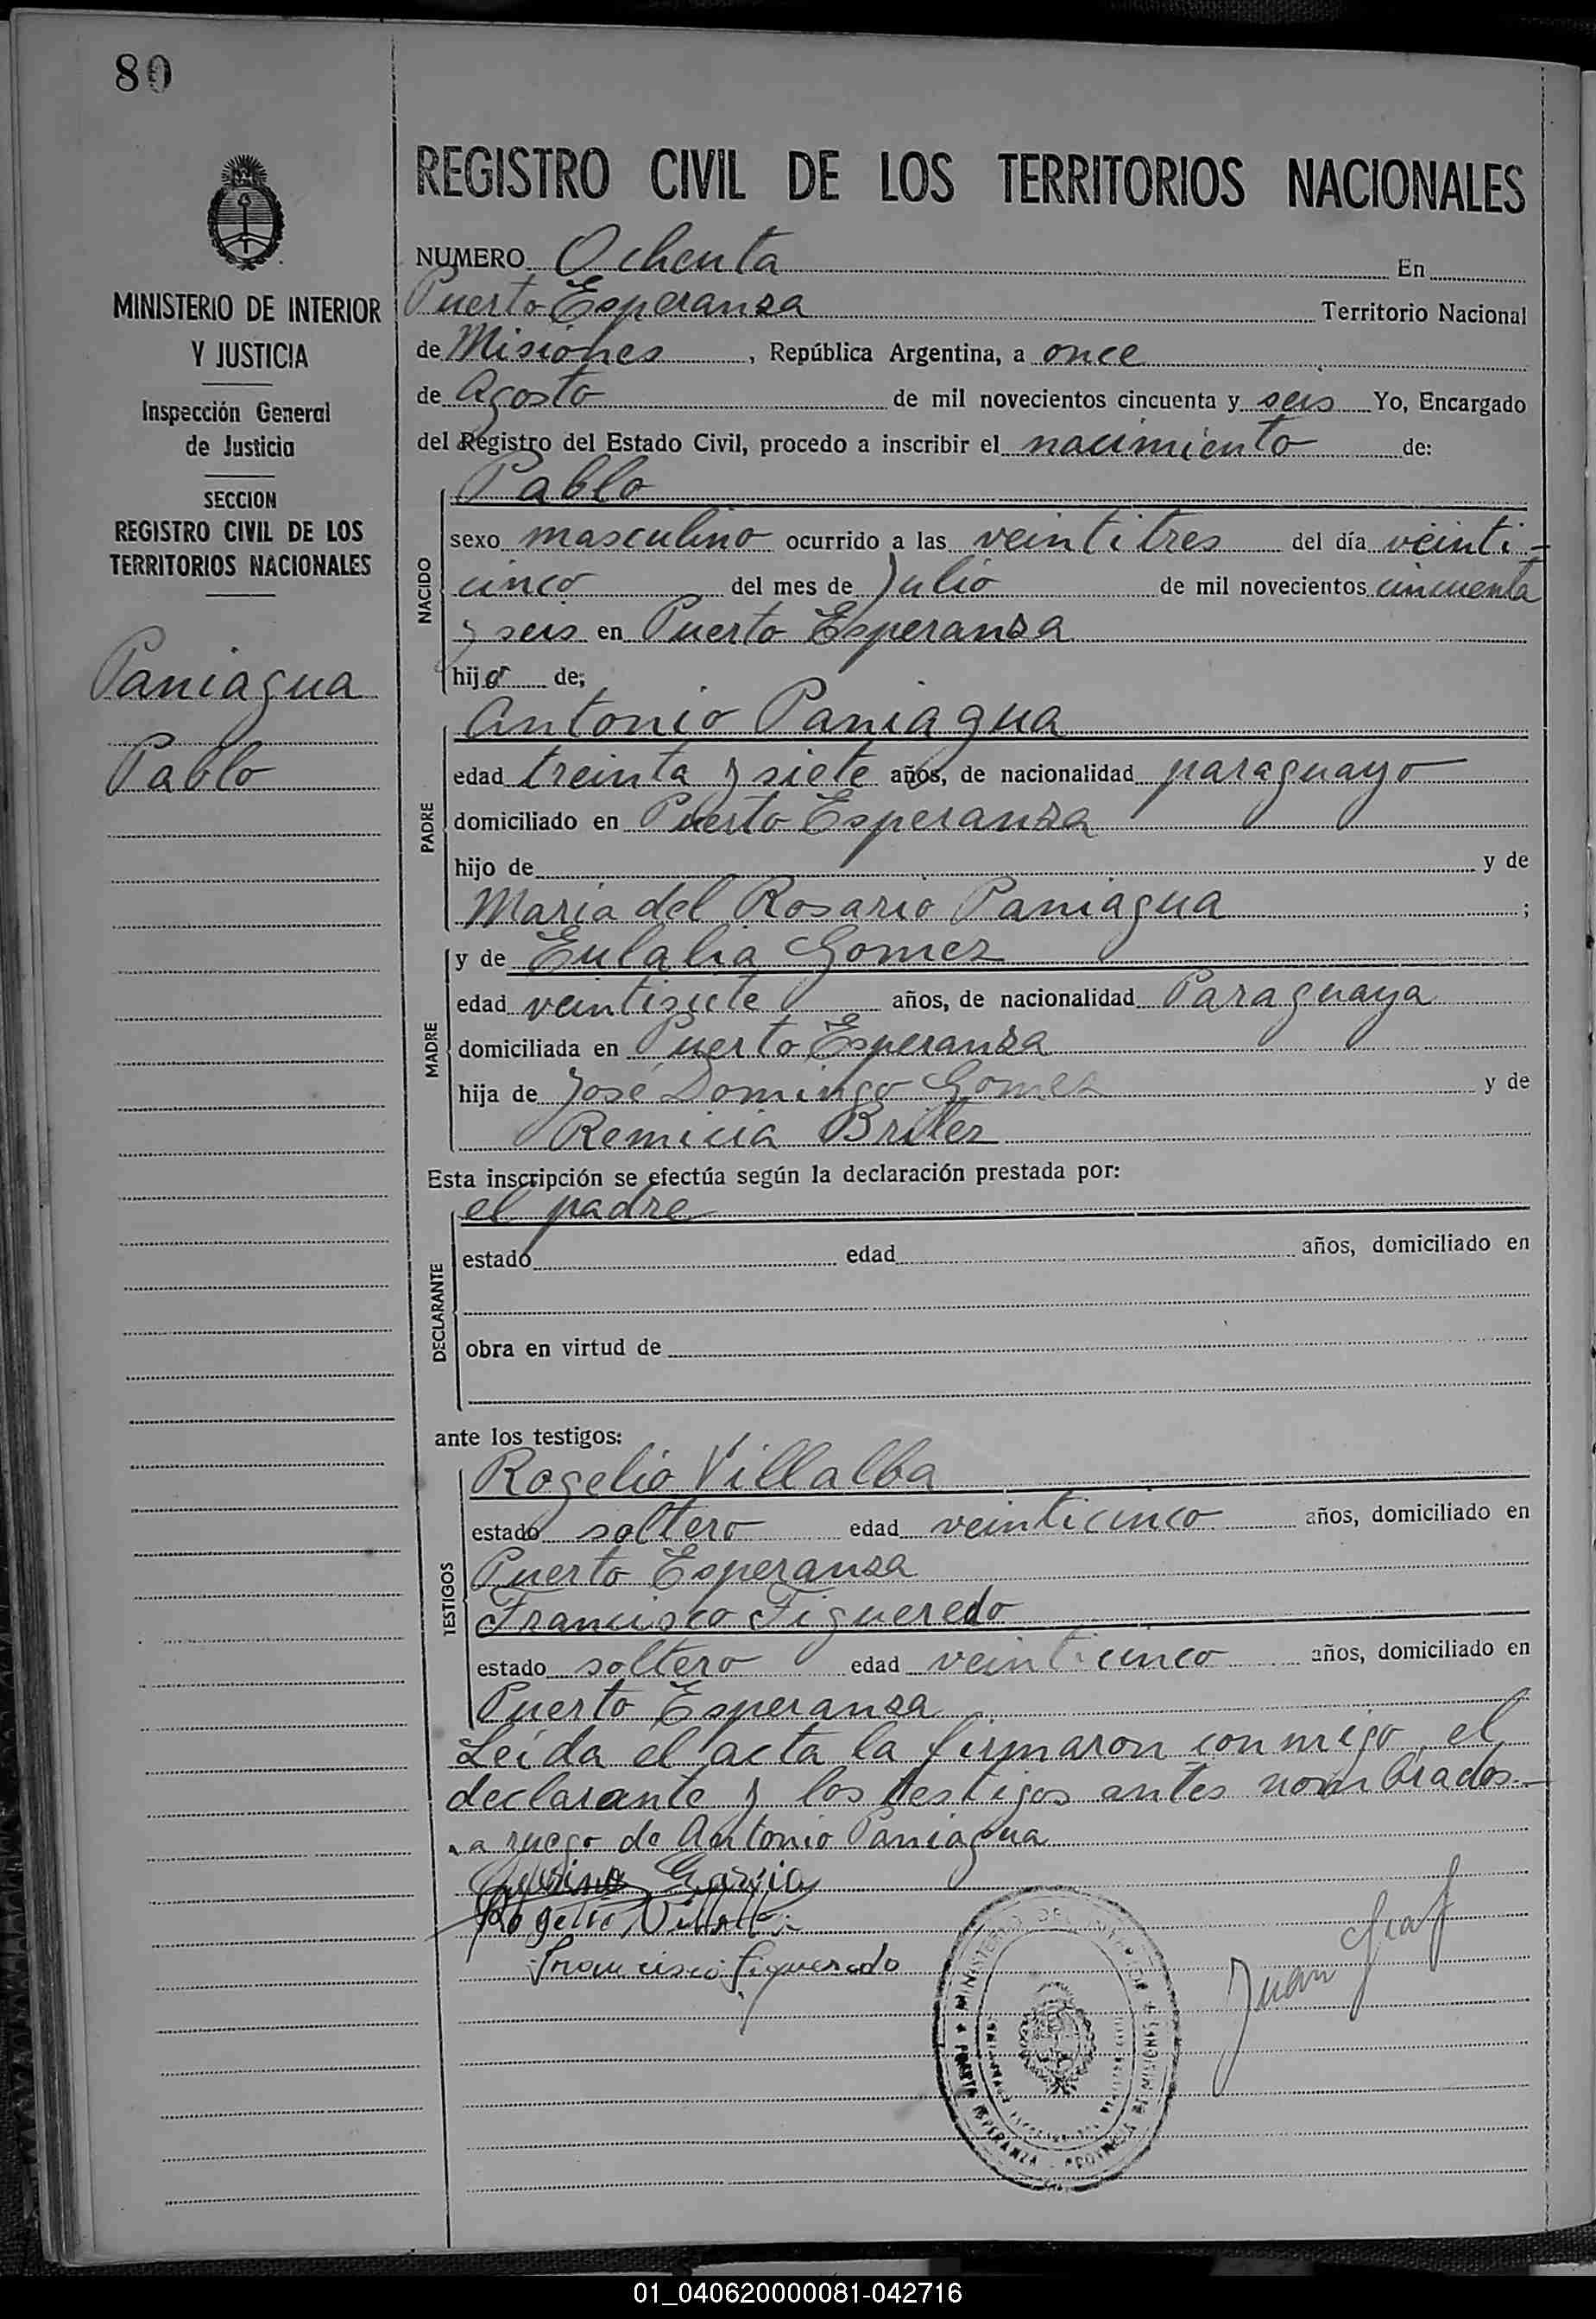 80
MINISTERIO DE INTERIOR
Y JUSTICIA
Inspección General
de Justicia
SECCION
REGISTRO CIVIL DE LOS
TERRITORIOS NACIONALES
Paniagua
Pablo
REGISTRO CIVIL DE LOS TERRITORIOS NACIONALES
NUMERO Ochenta En
Puerto Esperanza Territorio Nacional
de Misiones, República Argentina, a once
de Agosto de mil novecientos cincuenta y seis Yo, Encargado
del Registro del Estado Civil, procedo a inscribir el nacimiento de:
Pablo
NACIDO
sexo masculino ocurrido a las veintitres del día veinti-
cinco del mes de Julio de mil novecientos cincuenta
y seis en Puerto Esperanza
hijo de;
PADRE
Antonio Paniagua
edad treinta y siete años, de nacionalidad paraguayo
domiciliado en Puerto Esperanza
hijo de y de
Maria del Rosario Paniagua ;
MADRE
y de Eulalia Gomez
edad veintisiete años, de nacionalidad Paraguaya
domiciliada en Puerto Esperanza
hija de José Domingo Gomez y de
Remicia Britez
Esta inscripción se efectúa según la declaración prestada por:
DECLARANTE
el padre
estado edad años, domiciliado en
obra en virtud de
ante los testigos:
TESTIGOS
Rogelio Villalba
estado soltero edad veinticinco años, domiciliado en
Puerto Esperanza
Francisco Figueredo
estado soltero edad veinticinco años, domiciliado en
Puerto Esperanza
Leída el acta la firmaron conmigo, el
declarante y los testigos antes nombrados.-
a ruego de Antonio Paniagua
Garcia
Rogelio Villalba
Francisco Figueredo
Juan Graf
MINISTERIO DEL INTERIOR
PUERTO ESPERANZA - PROVINCIA DE MISIONES
01_040620000081-042716